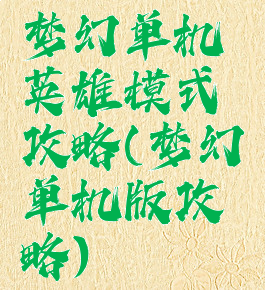 梦幻单机
英雄模式
攻略(梦幻
单机版攻
略)